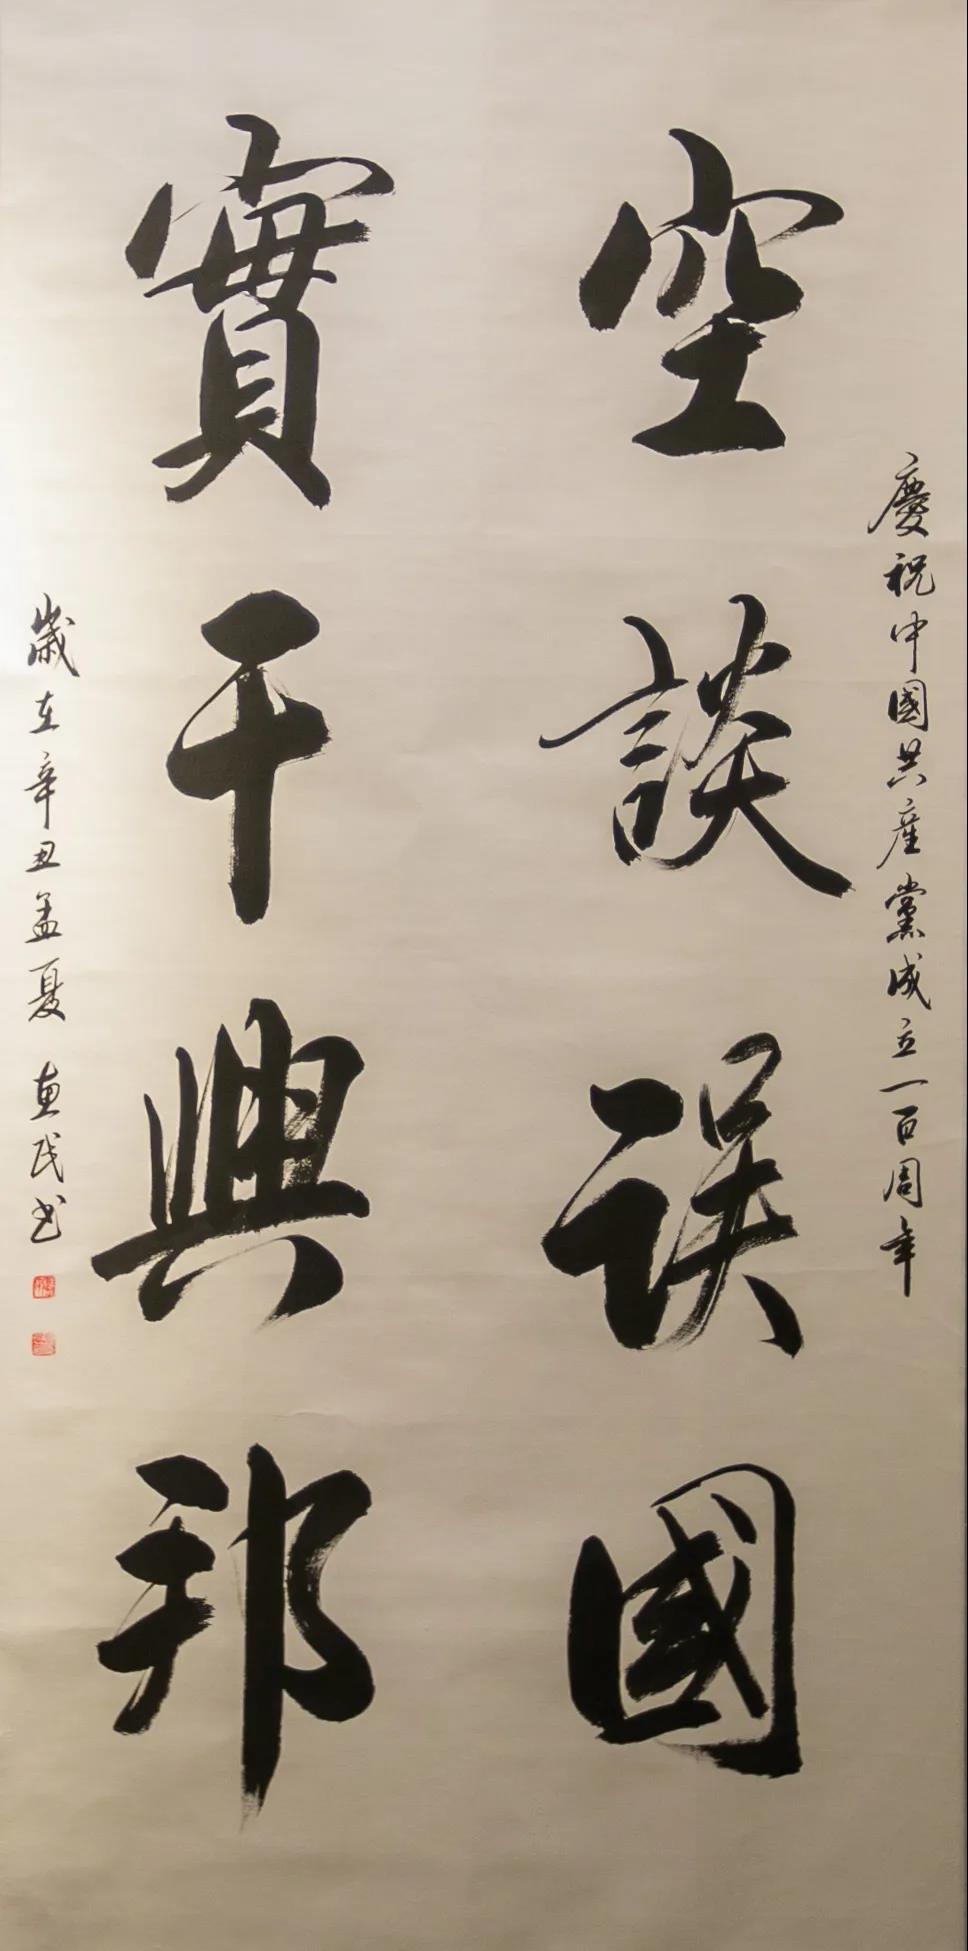 慶祝中國共産黨成立一百周年
空談误國
實干興邦
歲在辛丑孟夏 惠民书